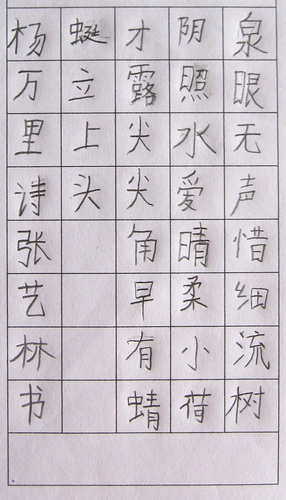 泉眼无声惜细流树
阴照水爱晴柔小荷
才露尖尖角早有蜻
蜓立上头
杨万里诗张艺林书